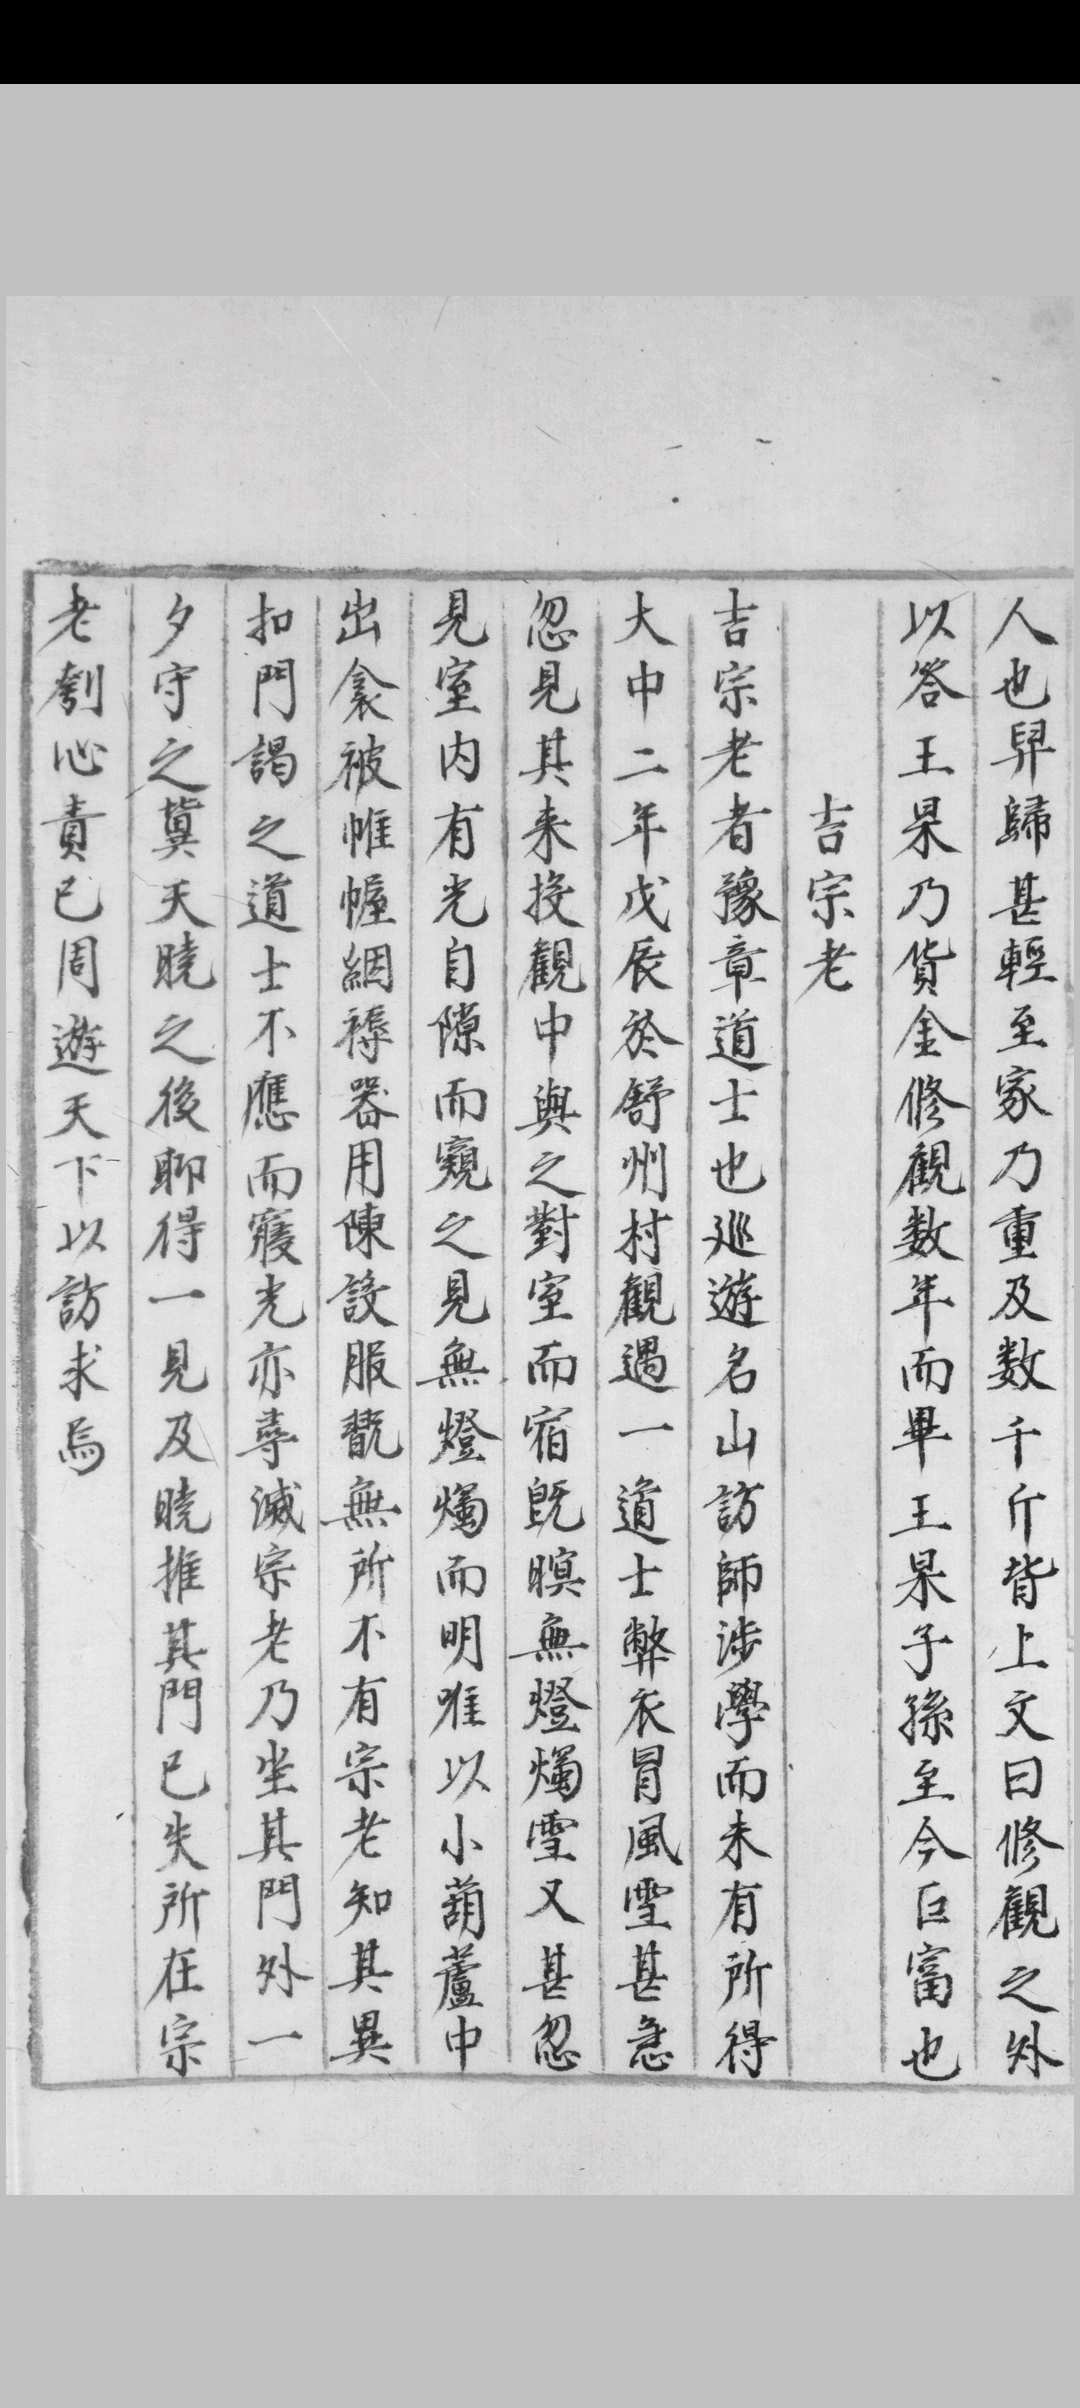 人也舁歸甚輕至家乃重及数千斤背上文曰修觀之外
以答王杲乃貨金修觀数年而畢王杲子孫至今巨富也
吉宗老
吉宗老者豫章道士也巡遊名山訪師涉學而未有所得
大中二年戊辰於舒州村觀遇一道士弊衣冒風雪甚急
忽見其来投觀中與之對室而宿既暝無燈燭雪又甚忽
見室内有光自隙而窺之見無燈燭而明唯以小葫蘆中
出衾被帷幄絪褥器用陳設服翫無所不有宗老知其異
扣門謁之道士不應而寢光亦尋滅宗老乃坐其門外一
夕守之冀天曉之後聊得一見及曉推其門已失所在宗
老刳心責已周遊天下以訪求焉